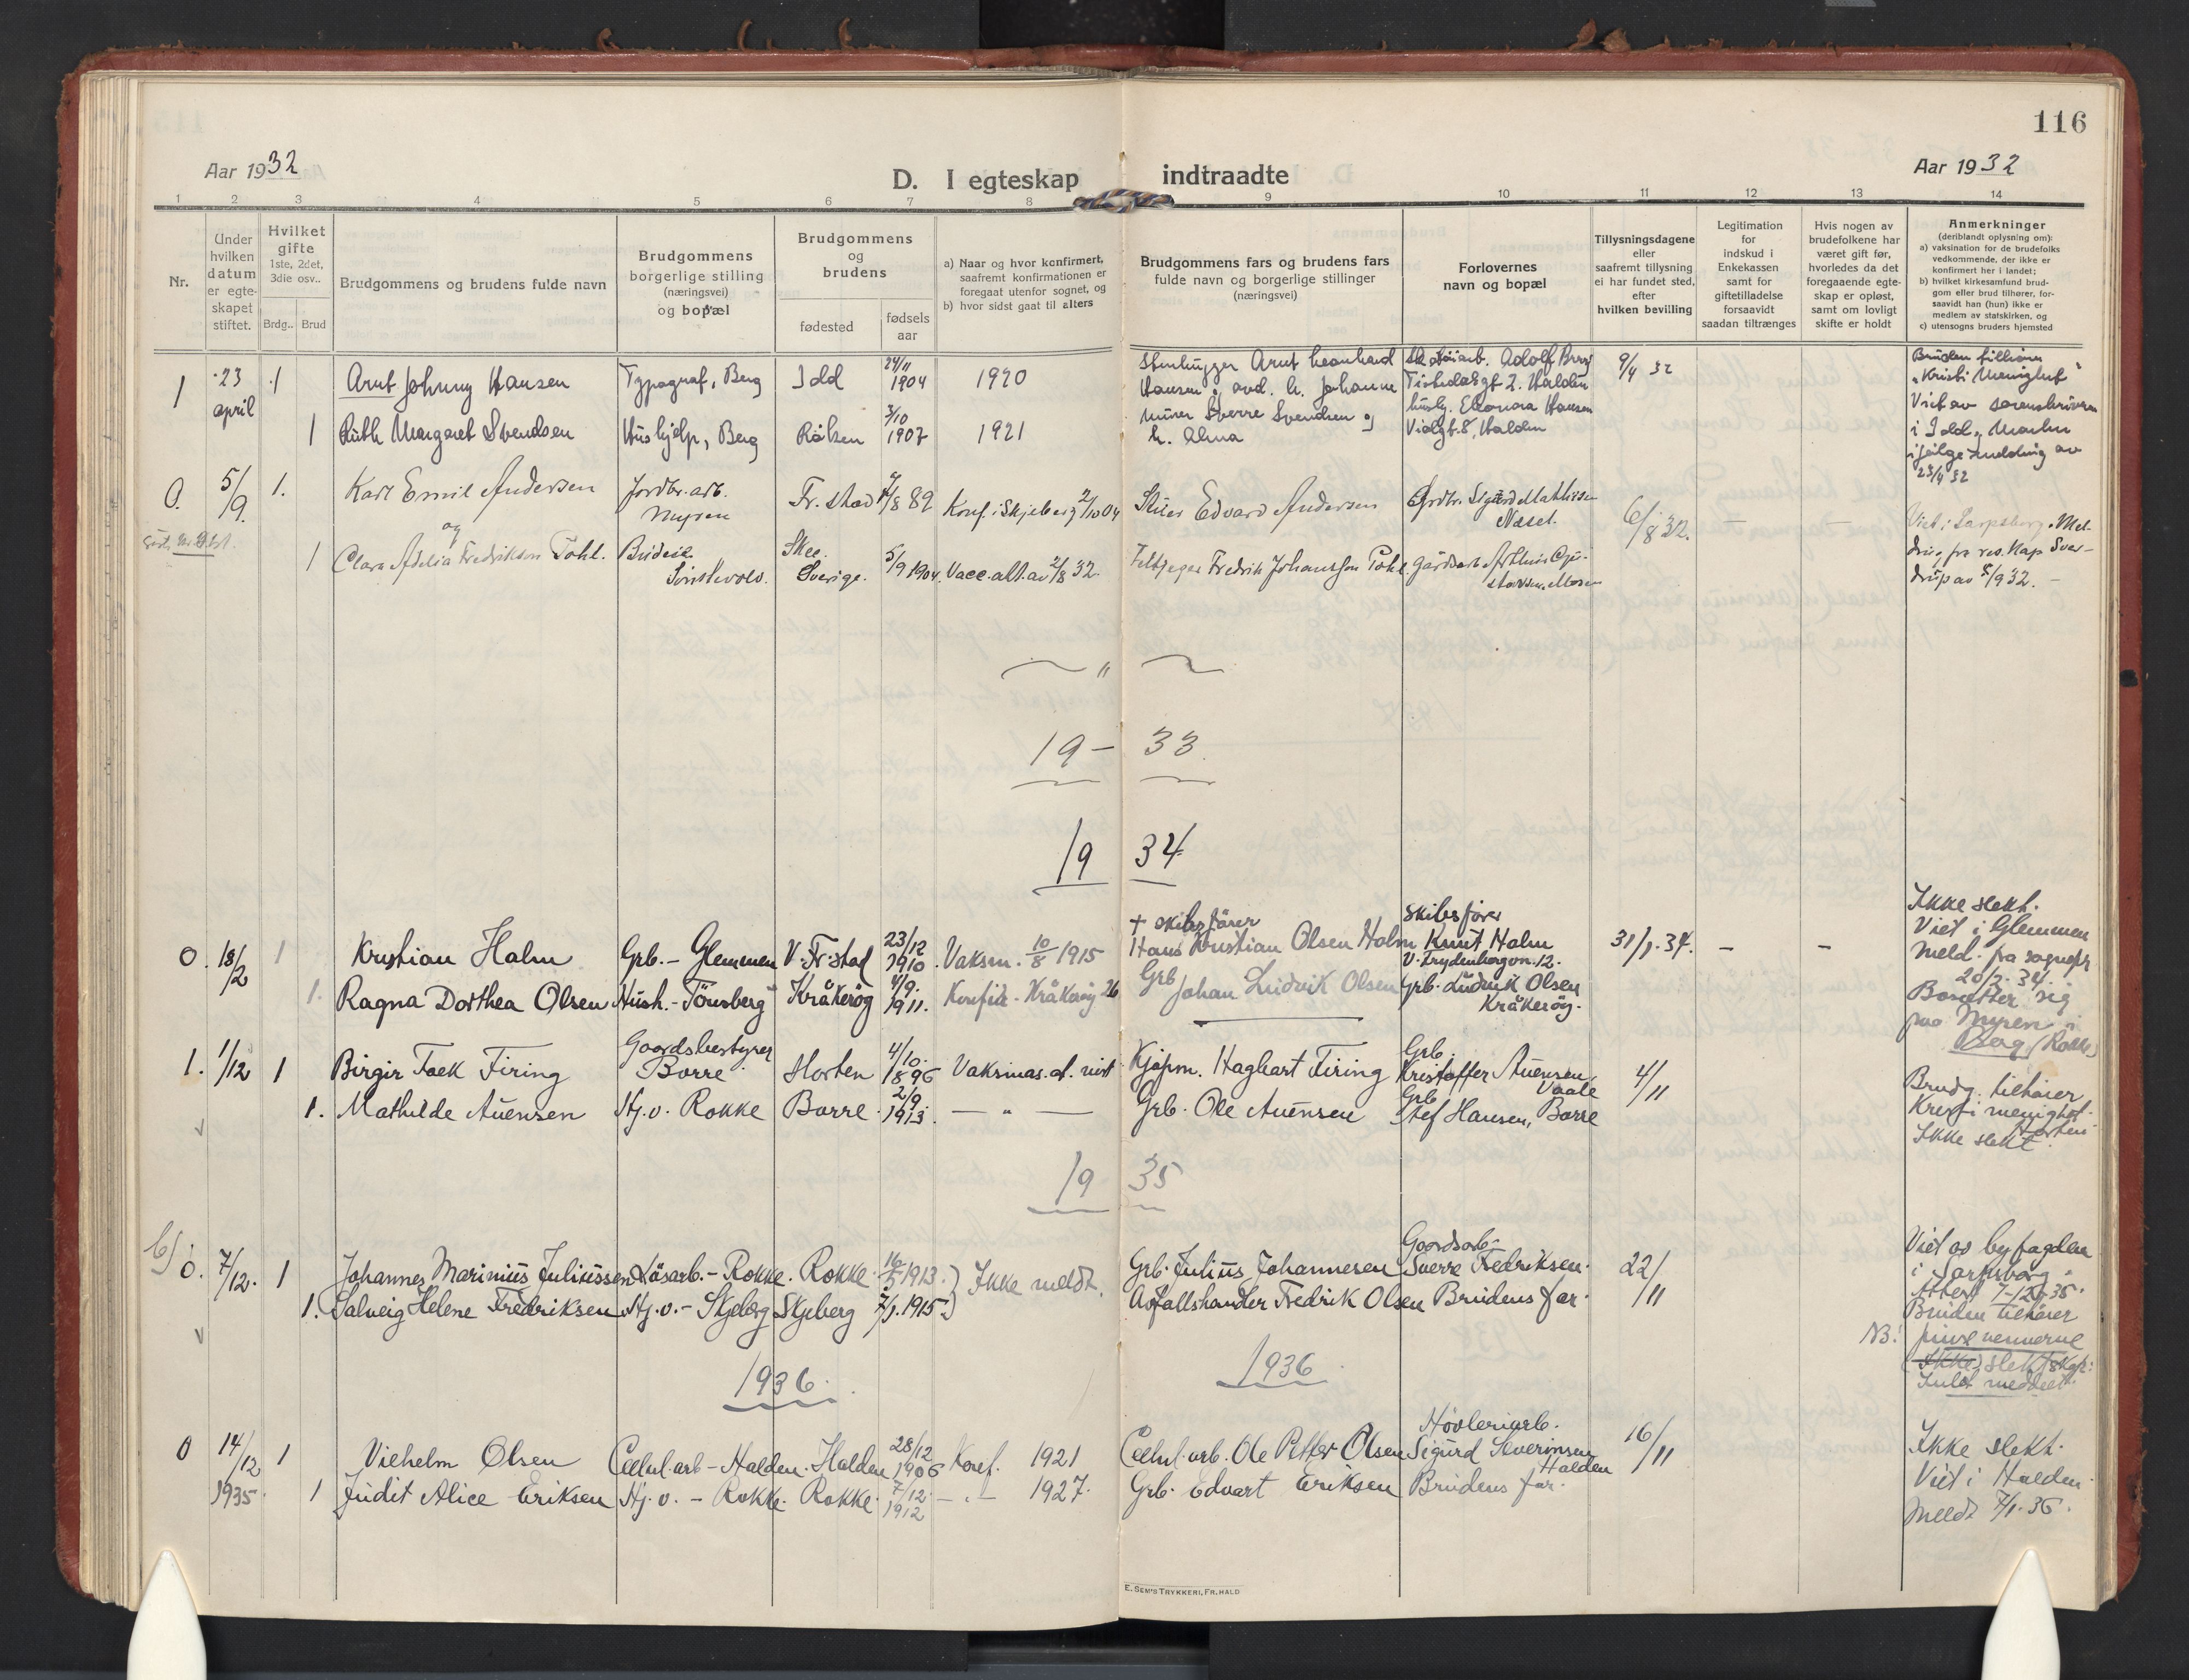 116
Aar 1932
D. I egteskap indtraadte
Aar 1932
1 2 3 4 5 6 7 8 9 10 11 12 13 14
Nr.
Under
hvilken
datum
er egte-
skapet
stiftet.
Hvilket
gifte
1ste, 2det,
3die osv..
Brdg.. Brud
Brudgommens og brudens fulde navn
Brudgommens
borgerlige stilling
(næringsvei)
og bopæl
Brudgommens
og
brudens
fødested
fødsels
aar
a) Naar og hvor konfirmert,
saafremt konfirmationen er
foregaat utenfor sognet, og
b) hvor sidst gaat til alters
Brudgommens fars og brudens fars
fulde navn og borgerlige stillinger
(næringsvei)
Forlovernes
navn og bopæl
Tillysningsdagene
eller
saafremt tillysning
ei har fundet sted,
efter
hvilken bevilling
Legitimation
for
indskud i
Enkekassen
samt for
giftetilladelse
forsaavidt
saadan tiltrænges
Hvis nogen av
brudefolkene har
været gift før,
hvorledes da det
foregaaende egte-
skap er opløst,
samt om lovligt
skifte er holdt
Anmerkninger
(deriblandt oplysning om):
a) vaksination for de brudefolks
vedkommende, der ikke er
konfirmert her i landet;
b) hvilket kirkesamfund brud-
gom eller brud tilhører, for-
saavidt han (hun) ikke er
medlem av statskirken, og
c) utensogns bruders hjemsted
1 23 april 1 Arnt Johnny Hansen Typograf, Berg Idd 24/11 1904 1920
Stenhugger Arnt Leonhard
Hansen og avd. h. Johanne
Adolf Berg
Tistedalsgt 2. Halden
9/4 32
1 Ruth Margaret Svendsen Hushjelp, Berg Råken 3/10 1907 1921
Murer Sverre Svendsen og
h. Alma
husbg. Eleonora Hansen
Violgt. 8, Halden
Bruden tilhører
"Kristi Menighet"
Viet av sorenskriveren
i Idd & Marker
ifølge melding av
23/4 32
0. 5/9. 1. Karl Emil Andersen Jordbr.arb. Myren Fr.stad /8 82 Konf. i Skjeberg 2/10 04
Edvard Andersen
Sigurd Mathisen
Næset.
6/8 32. — —
og
1 Clara Adelia Fredrikson Pohl. Budeie Skee. Sverige. 5/9 1904. Vacc.att. av 2/8 32.
Feltjeger Fredrik Johansson Pohl. gårdsarb Arthur
Viet i Sarpsborg. Mel-
ding fra res. Kap Sver-
drup av 5/9 32. —
19 – 33
19 34
0. 18/2 1 Kristian Holm Grb. – Glemmen V. Fr.stad 23/12 1910. Vaksin. 10/8 1915
+ skibsfører
Hans Kristian Olsen Holm
skibsfører
Knut Holm
V. Frydenbergvn. 12.
31/1. 34. — —
1. Ragna Dorthea Olsen Hush. – Tönsberg Kråkeröy 4/9. 1911. Konfir. – Kråkeröy 26
Grb Johan Ludvik Olsen
Grb. Ludvik Olsen
Kråkeröy.
Ikke slekt.
Viet i Glemmen
Meld. fra sognepr
20/2. 34.
Bosetter sig
paa Myren i
Berg (Rokke)
1. 1/12 1 Birgir Falk Firing Goordsbestyrer Borre Horten 4/10. 1896 Vaksinas. at. vist
Kjøpm. Hagbart Firing
Grb.
Kristoffer Auensen
Vaale
4/11
1. Mathilde Auensen Hj. v. Rokke Borre 2/9. 1913. — " —
Grb. Ole Auensen
Grb
Hansen, Borre
Brudg. tilhører
Kristi menighet
Horten.
Ikke slekt.
19 35
0. 7/12. 1 Johannes Marinius Juliussen Løsarb. – Rokke. Rokke. 1913. Ikke meldt.
Grb. Julius Johannesen
Goordsarb.
Sverre Fredriksen.
22/11
1. Solveig Helene Fredriksen Hj.v. – Skjeberg Skjeberg 7/1. 1915.
Avfallshandler Fredrik Olsen Brudens far.
Viet av byfogden
i Sarpsborg.
Attest 7–12–35.
Bruden tilhører
NB! pinsevennerne
(Ikke) slektskap:
Intet meddelt.
1936. 1936
0 14/12 1935 1 Vilhelm Olsen Cellul.arb – Halden. Halden 28/12 1906 Konf. 1921
Cellul.arb. Ole Petter Olsen
Høvleriarb.
Sigurd Severinsen
Halden
16/11
1 Judit Alice Eriksen Hj. v. – Rokke. Rokke. 7/12. 1912 – " – 1927.
Grb. Edvart Eriksen Brudens far.
Ikke slekt.
Viet i Halden.
Meldt 7/1. 36.
E. SEM'S TRYKKERI, FR.HALD